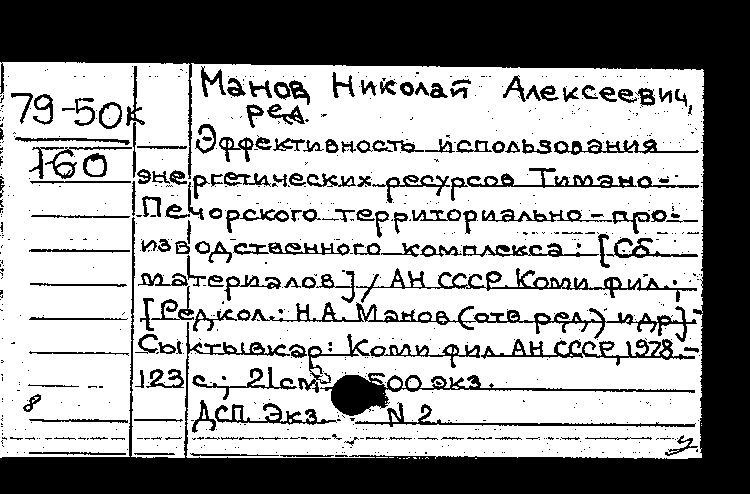 Манов Николай Алексеевич,
ред.
79-50к
160
Эффективность использования
энергетических ресурсов Тимано-
Печорского территориально-про-
изводственного комплекса: [Сб.
материалов] / АН СССР. Коми фил.;
[Редкол.: Н.А. Манов (отв. ред.) и др.]-
Сыктывкар: Коми фил. АН СССР, 1978.-
123 с.; 21 см 500 экз.
ДСП. Экз. N 2.
8